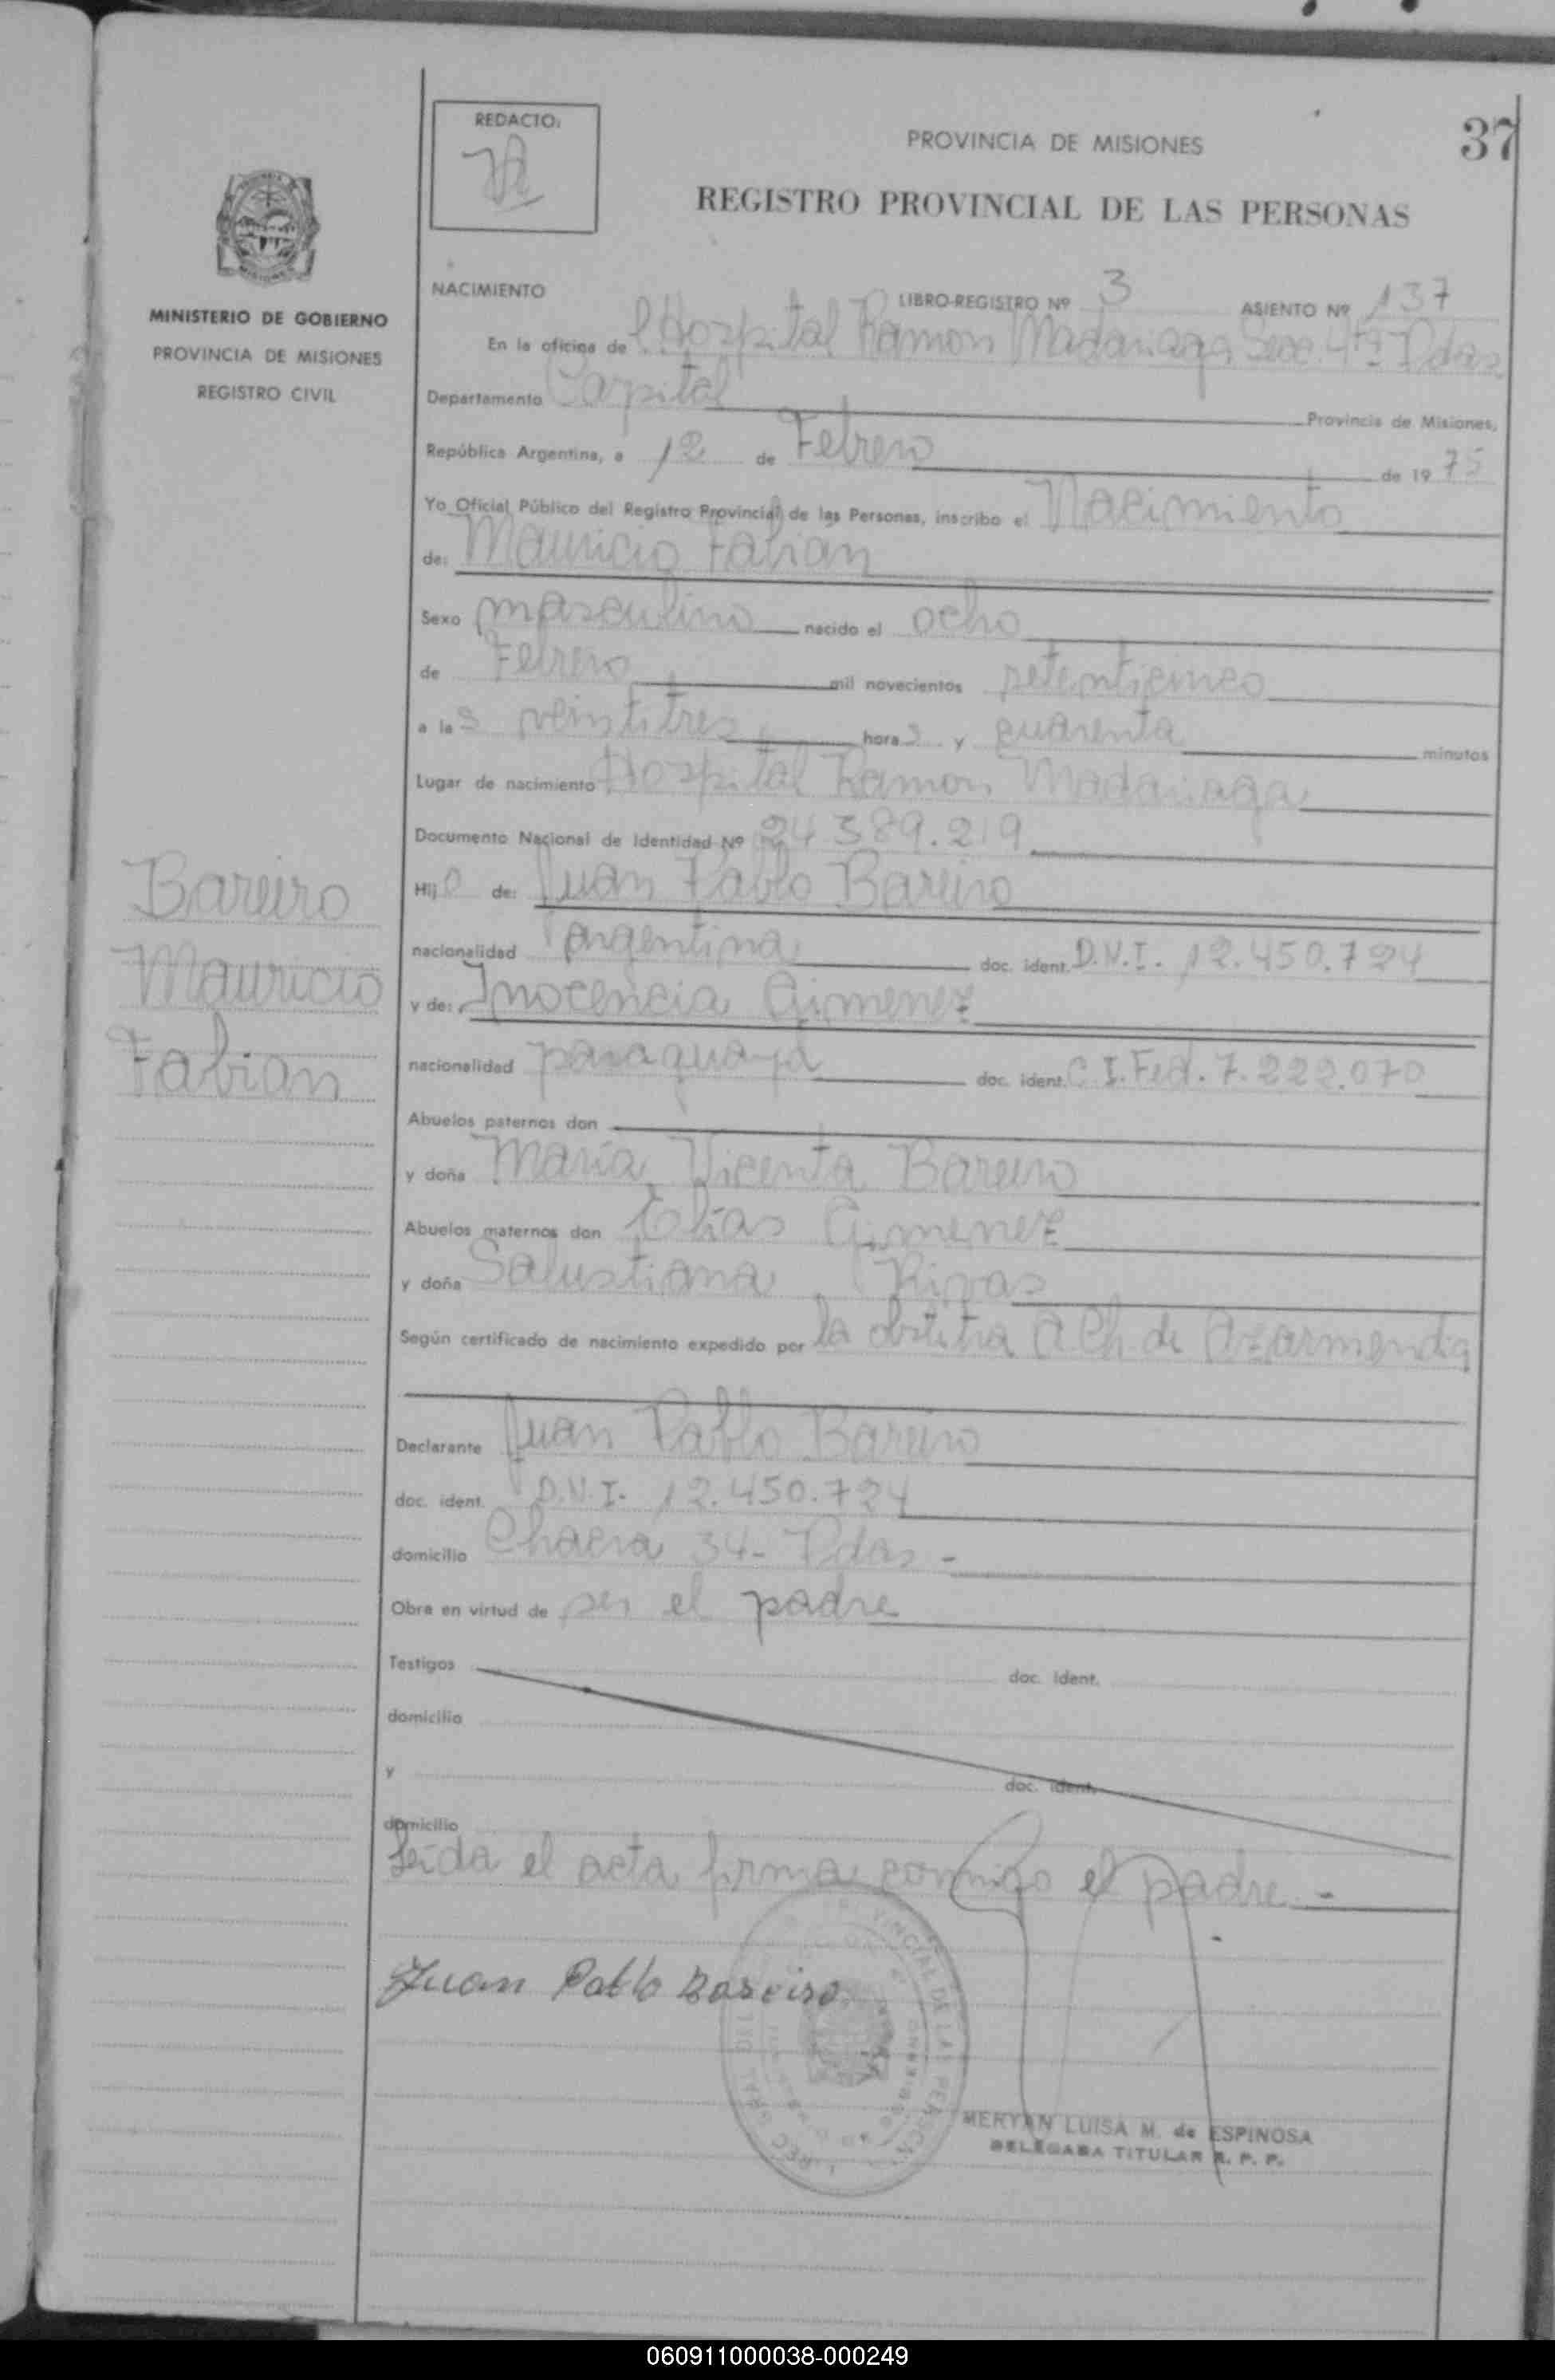 REDACTO:
PROVINCIA DE MISIONES
37
REGISTRO PROVINCIAL DE LAS PERSONAS
MINISTERIO DE GOBIERNO
PROVINCIA DE MISIONES
REGISTRO CIVIL
NACIMIENTO LIBRO-REGISTRO Nº 3 ASIENTO Nº 137
En la oficina de l Hospital Ramon Madariaga Secc. 4ta Pdas
Departamento Capital Provincia de Misiones,
República Argentina, a 12 de Febrero de 1975
Yo Oficial Público del Registro Provincial de las Personas, inscribo el Nacimiento
de: Mauricio Fabian
Sexo masculino nacido el ocho
de Febrero mil novecientos setenticinco
a las veintitres horas y cuarenta minutos
Lugar de nacimiento Hospital Ramon Madariaga
Documento Nacional de Identidad Nº 24.389.219
Bareiro
Mauricio
Fabian
Hijo de: Juan Pablo Bareiro
nacionalidad argentina doc. ident. D.N.I. 12.450.724
y de: Inocencia Gimenez
nacionalidad paraguaya doc. ident. C.I. Fed. 7.222.070
Abuelos paternos don
y doña Maria Vicenta Bareiro
Abuelos maternos don Elias Gimenez
y doña Salustiana Rivas
Según certificado de nacimiento expedido por la obstetra A Ch. de Azarmendia
Declarante Juan Pablo Bareiro
doc. ident. D.N.I. 12.450.724
domicilio Chacra 34- Pdas -
Obra en virtud de ser el padre
Testigos doc. ident.
domicilio
y doc. ident.
domicilio
Leida el acta firma conmigo el padre -
Juan Pablo Bareiro
MERYAN LUISA M. de ESPINOSA
DELEGADA TITULAR R. P. P.
060911000038-000249